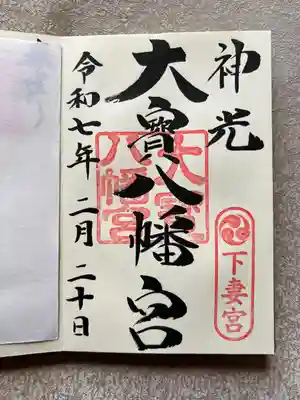 神光
下妻宮
大寶八幡宮
大寶八幡宮
令和七年二月二十日